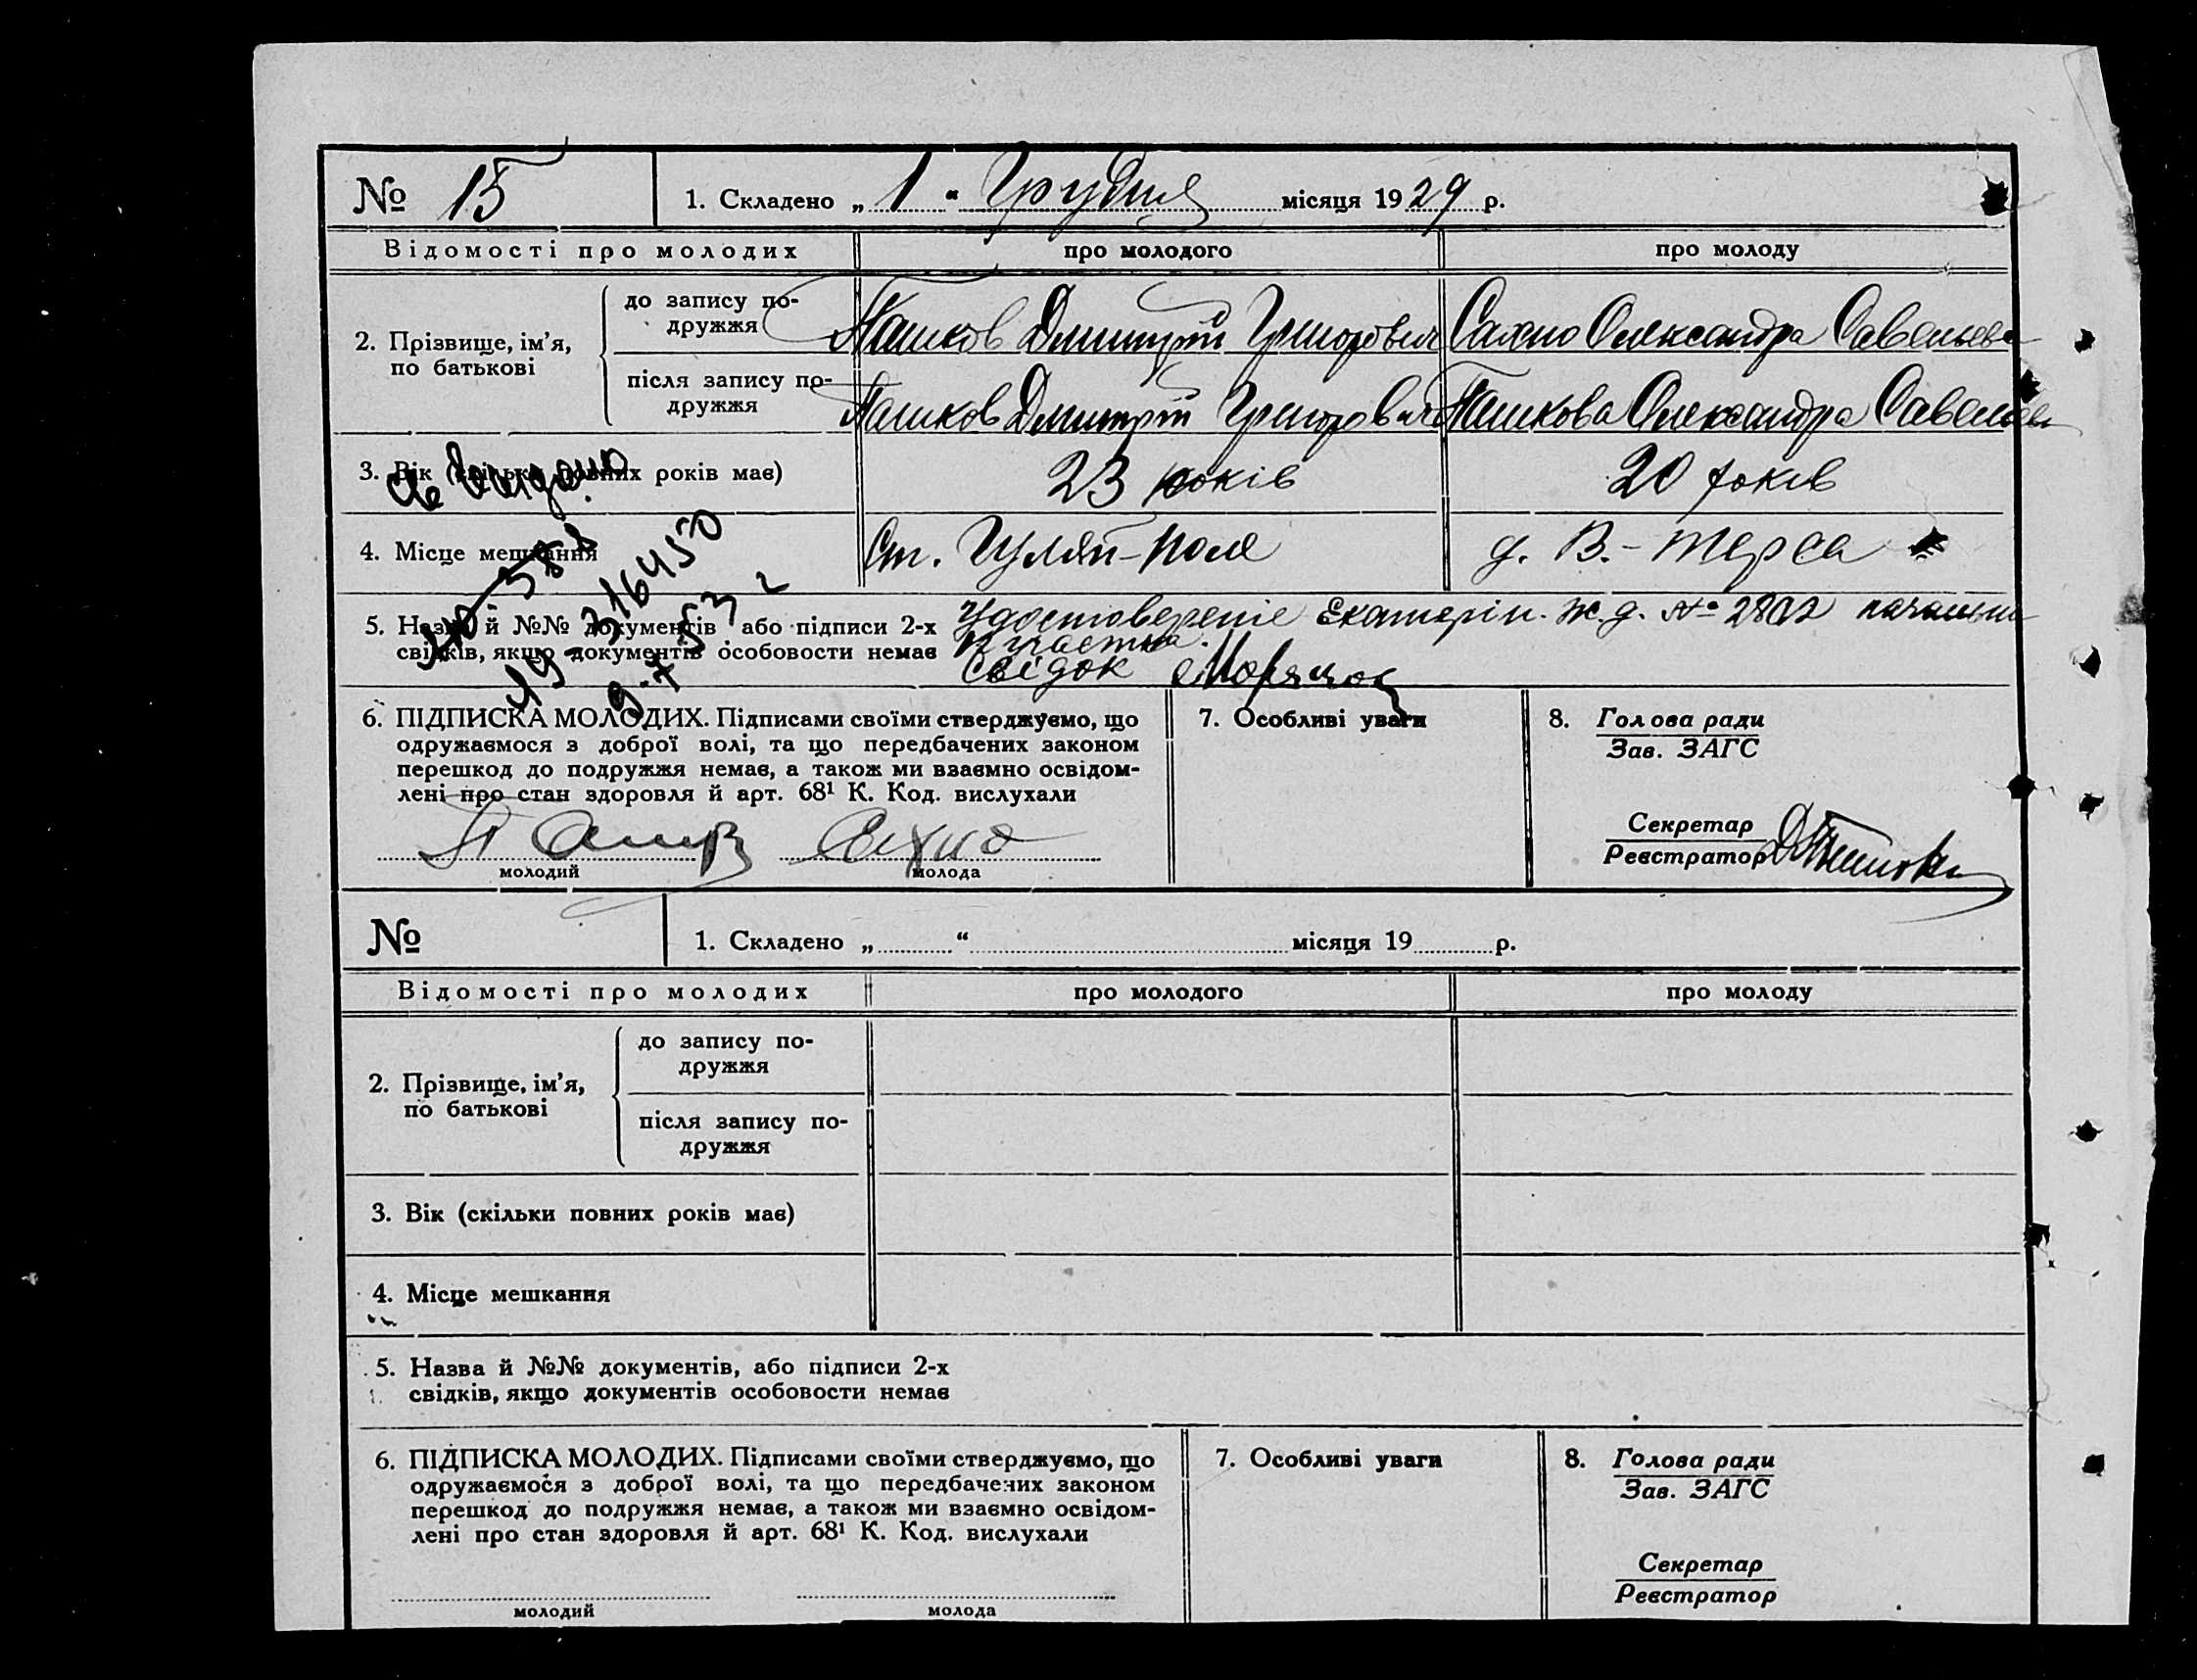 № 15
1. Складено „ 1 “ Грудня місяця 1929 р.
Відомості про молодих
про молодого
про молоду
2. Прізвище, ім’я,
по батькові
до запису по-
дружжя
Пашков Дмитрій Григорович
Сахно Олександра Савельева
після запису по-
дружжя
Пашков Дмитрій Григорович
Пашкова Олександра Савельев
3. Вік (скільки повних років має)
23 років
20 років
4. Місце мешкання
Ст. Гуляй-Поле
д. В.-Терса
5. Назва й №№ документів або підписи 2-х
свідків, якщо документів особовости немає
Удостоверепіе Екатерін. ж.д. № 2802
участка.
Свідок
316450
6. ПІДПИСКА МОЛОДИХ. Підписами своїми стверджуємо, що
одружаємося з доброї волі, та що передбачених законом
перешкод до подружжя немає, а також ми взаємно освідом-
лені про стан здоровля й арт. 68¹ К. Код. вислухали
Сахно
молодий
молода
7. Особливі уваги
8. Голова ради
Зав. ЗАГС
Секретар
Реєстратор
№
1. Складено „ “ місяця 19 р.
Відомості про молодих
про молодого
про молоду
2. Прізвище, ім’я,
по батькові
до запису по-
дружжя
після запису по-
дружжя
3. Вік (скільки повних років має)
4. Місце мешкання
5. Назва й №№ документів, або підписи 2-х
свідків, якщо документів особовости немає
6. ПІДПИСКА МОЛОДИХ. Підписами своїми стверджуємо, що
одружаємося з доброї волі, та що передбачених законом
перешкод до подружжя немає, а також ми взаємно освідом-
лені про стан здоровля й арт. 68¹ К. Код. вислухали
молодий
молода
7. Особливі уваги
8. Голова ради
Зав. ЗАГС
Секретар
Реєстратор